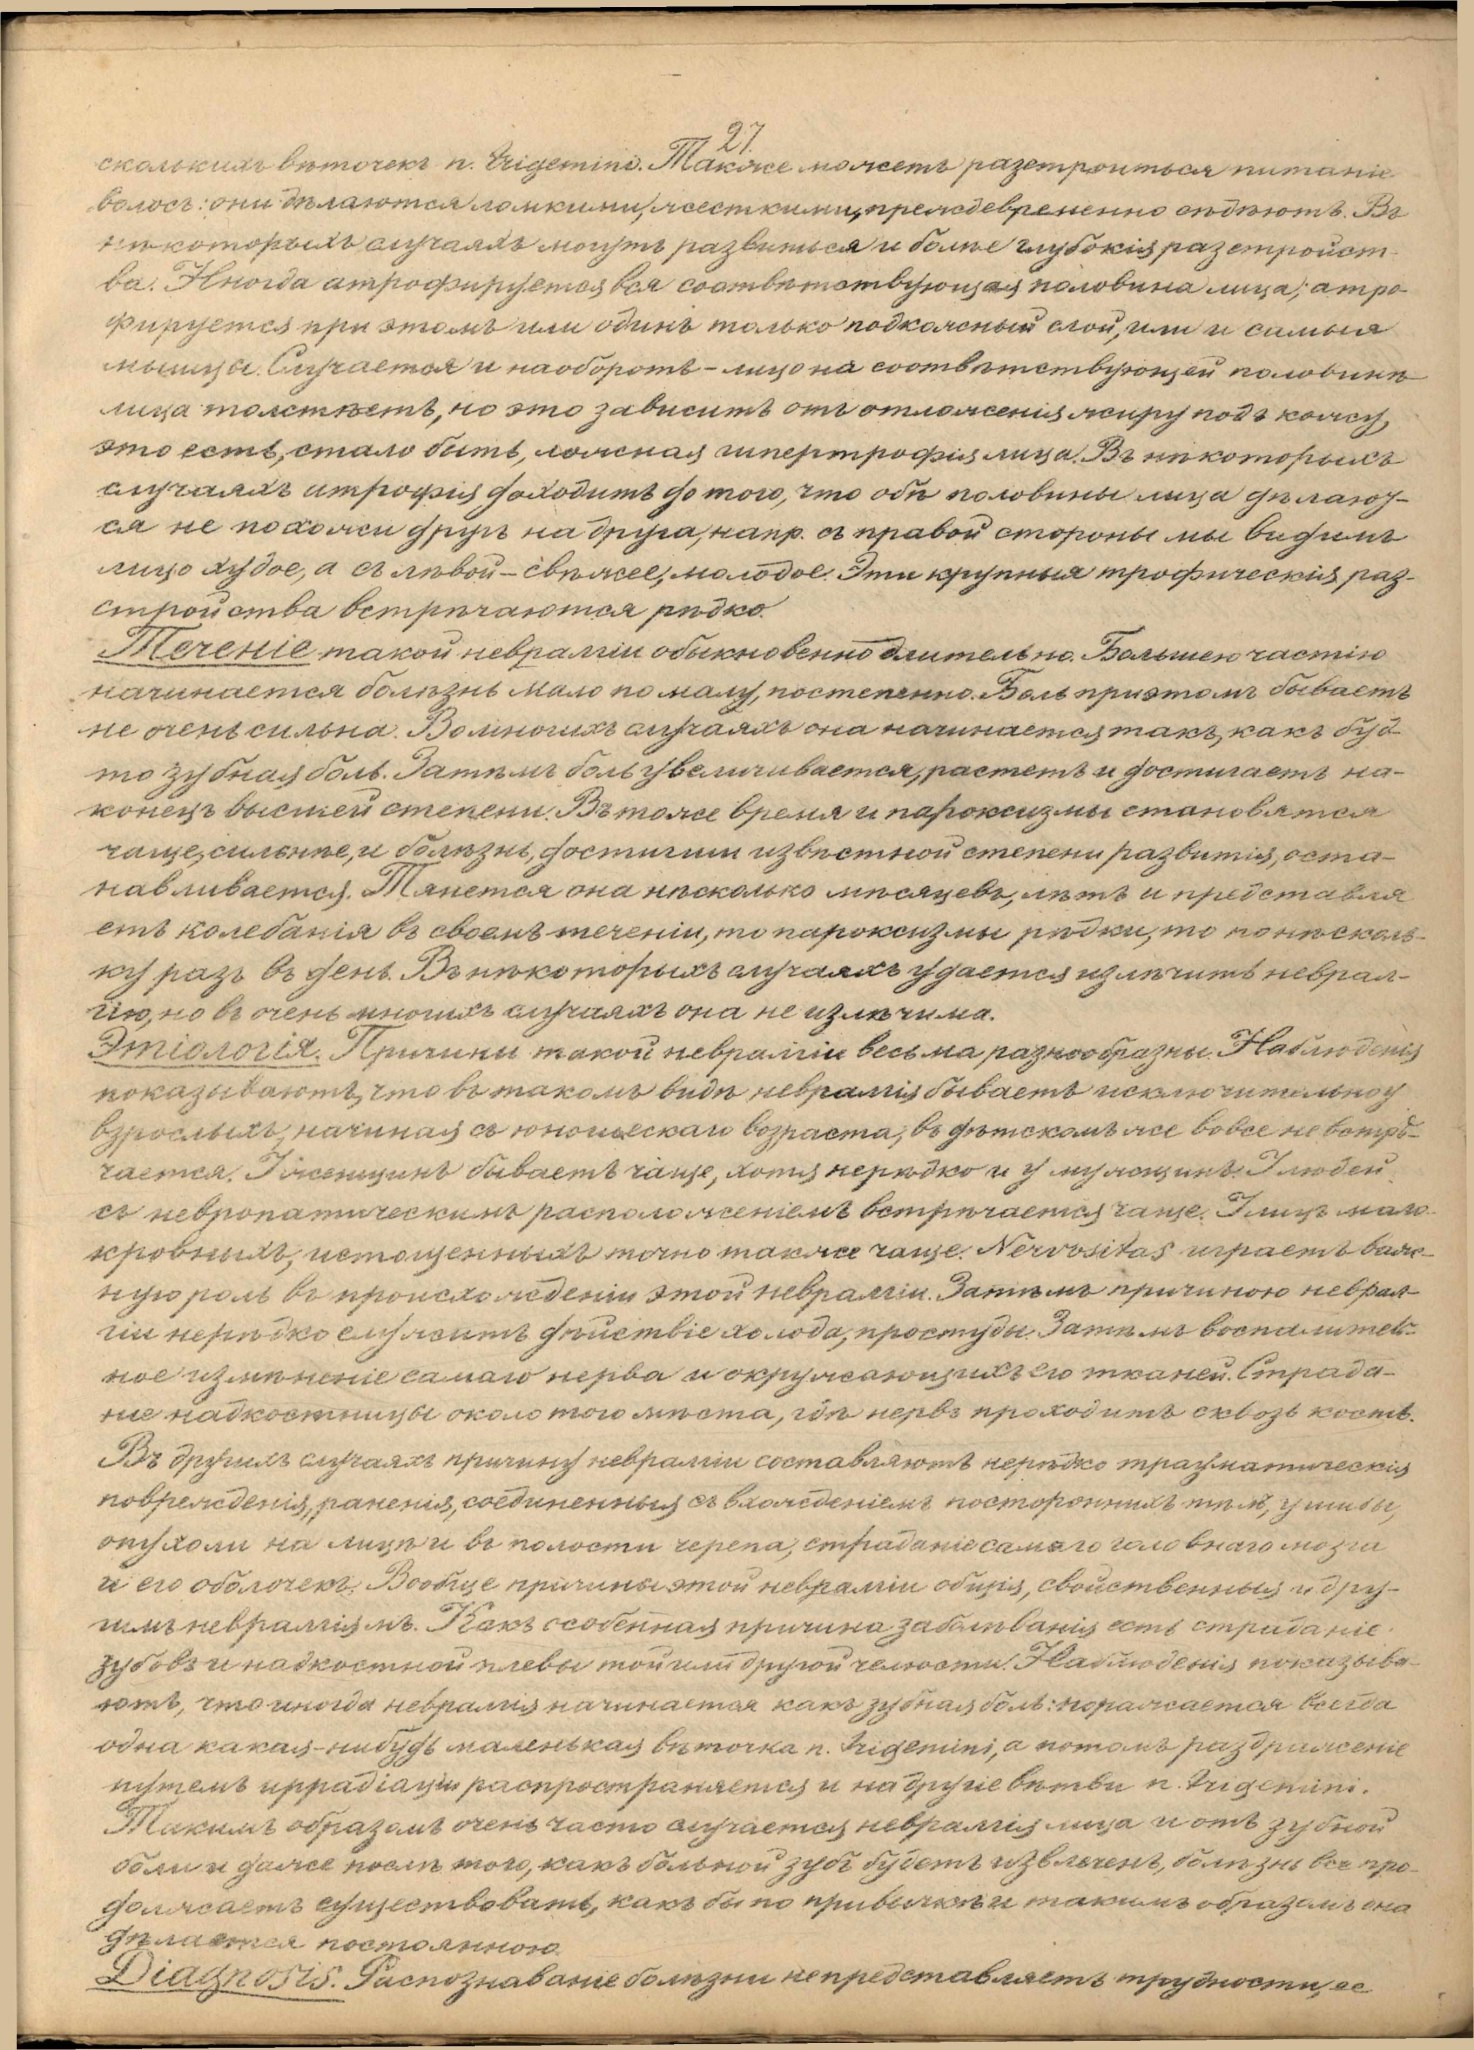 27.
скольких вѣточекъ n. trigemini. Также можетъ разстроиться питаніе
волосъ: они дѣлаются ломкими, жесткими, преждевременно сѣдѣютъ. Въ
нѣкоторыхъ случаяхъ могутъ развиться и болѣе глубокія разстройст-
ва. Иногда атрофируется вся соотвѣтствующая половина лица; атро-
фируется при этомъ или одинъ только подкожный слой, или и самыя
мышцы. Случается и наоборотъ – лицо на соотвѣтствующей половинѣ
лица толстѣетъ, но это зависитъ отъ отложенія жиру подъ кожу,
это есть, стало быть, ложная гипертрофія лица. Въ нѣкоторыхъ
случаяхъ атрофія доходитъ до того, что обѣ половины лица дѣлают-
ся не похожи другъ на друга, напр. съ правой стороны мы видимъ
лицо худое, а съ лѣвой – свѣжее, молодое. Эти крупныя трофическія раз-
стройства встрѣчаются рѣдко.
Теченіе такой невралгіи обыкновенно длительно. Большею частію
начинается болѣзнь мало по малу, постепенно. Боль приэтомъ бываетъ
не очень сильна. Во многихъ случаяхъ она начинается такъ, какъ буд-
то зубная боль. Затѣмъ боль увеличивается, растетъ и достигаетъ на-
конецъ высшей степени. Въ тоже время и пароксизмы становятся
чаще, сильнѣе, и болѣзнь, достигши извѣстной степени развитія, оста-
навливается. Тянется она нѣсколько мѣсяцевъ, лѣтъ и представля
етъ колебанія въ своемъ теченіи, то пароксизмы рѣдки, то по нѣсколь-
ку разъ въ день. Въ нѣкоторыхъ случаяхъ удается излѣчить неврал-
гію, но въ очень многихъ случаяхъ она не излѣчима.
Этіологія. Причины такой невралгіи весьма разнообразны. Наблюденія
показываютъ, что въ такомъ видѣ невралгія бываетъ исключительно у
взрослыхъ, начиная съ юношескаго возраста; въ дѣтскомъ же вовсе не встрѣ-
чается. У женщинъ бываетъ чаще, хотя нерѣдко и у мужщинъ. У людей
съ невропатическимъ расположеніемъ встрѣчается чаще. У лицъ мало-
кровныхъ, истощенныхъ точно также чаще. Nervositas играетъ важ-
ную роль въ происхожденіи этой невралгіи. Затѣмъ причиною неврал-
гіи нерѣдко служитъ дѣйствіе холода, простуды. Затѣмъ воспалитель-
ное измѣненіе самаго нерва и окружающихъ его тканей. Страда-
ніе надкостницы около того мѣста, гдѣ нервъ проходитъ сквозь кость.
Въ другихъ случаяхъ причину невралгіи составляютъ нерѣдко травматическія
поврежденія, раненія, соединенныя съ вхожденіемъ постороннихъ тѣлъ, ушибы,
опухоли на лицѣ и въ полости черепа, страданіе самаго головнаго мозга
и его оболочекъ. Вообще причины этой невралгіи общія, свойственныя и дру-
гимъ невралгіямъ. Какъ особенная причина заболѣванія есть страданіе
зубовъ и надкостной плевы той или другой челюсти. Наблюденія показыва-
ютъ, что иногда невралгія начинается какъ зубная боль: поражается всегда
одна какая-нибудь маленькая вѣточка n. trigemini, а потомъ раздраженіе
путемъ иррадіаціи распространяется и на другіе вѣтви n. trigemini.
Такимъ образомъ очень часто случается невралгія лица и отъ зубной
боли и даже послѣ того, какъ больной зубъ будетъ извлеченъ, болѣзнь все про-
должаетъ существовать, какъ бы по привычкѣ и такимъ образомъ она
дѣлается постоянною.
Diagnosis. Распознаваніе болѣзни не представляетъ трудности, ее